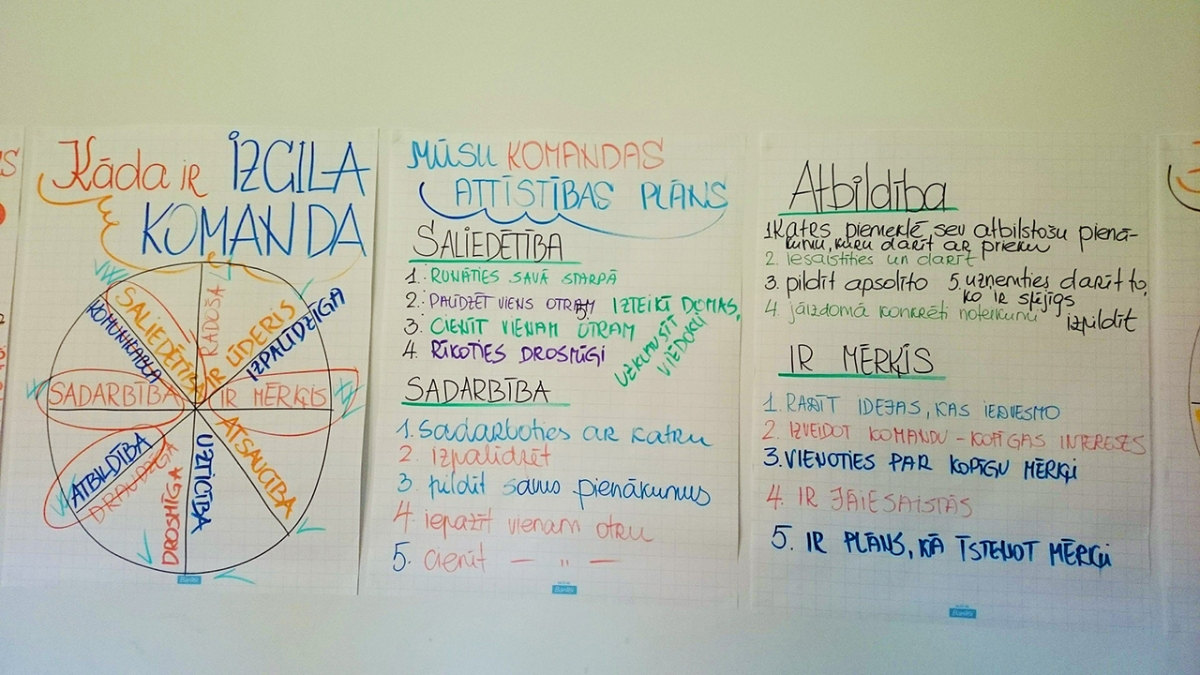 Kāda ir IZCILA
KOMANDA
SALIEDĒTĪBA
KOMUNICABLA
RADOŠA
IR LĪDERIS
IZPALĪDZĪGA
SADARBĪBA
IR MĒRĶIS
ATBILDĪBA
DRAUDZĪGA
DROSMĪGA
UZTICĪBA
ATSAUCĪBA
MŪSU KOMANDAS
ATTĪSTĪBAS PLĀNS
SALIEDĒTĪBA
1. RUNĀTIES SAVĀ STARPĀ
2. PALĪDZĒT VIENS OTRAM
3. CIENĪT VIENAM OTRAM
4. RĪKOTIES DROSMĪGI
5. IZTEIKT DOMAS,
UZKLAUSĪT
VIEDOKLI
SADARBĪBA
1. Sadarboties ar katru
2. izpalīdzēt
3. pildīt savus pienākumus
4. iepazīt vienam otru
5. cienīt — " —
Atbildība
1. Katrs piemeklē sev atbilstošu pienā-
kumu, kuru darīt ar prieku
2. iesaistīties un darīt
3. pildīt apsolīto
4. jāizdomā konkrēti noteikumi
5. uzņemties darīt to,
ko ir spējīgs
izpildīt
IR MĒRĶIS
1. RADĪT IDEJAS, KAS IEDVESMO
2. IZVEIDOT KOMANDU - KOPĪGAS INTERESES
3. VIENOTIES PAR KOPĪGU MĒRĶI
4. IR JĀIESAISTĀS
5. IR PLĀNS, KĀ ĪSTENOT MĒRĶI